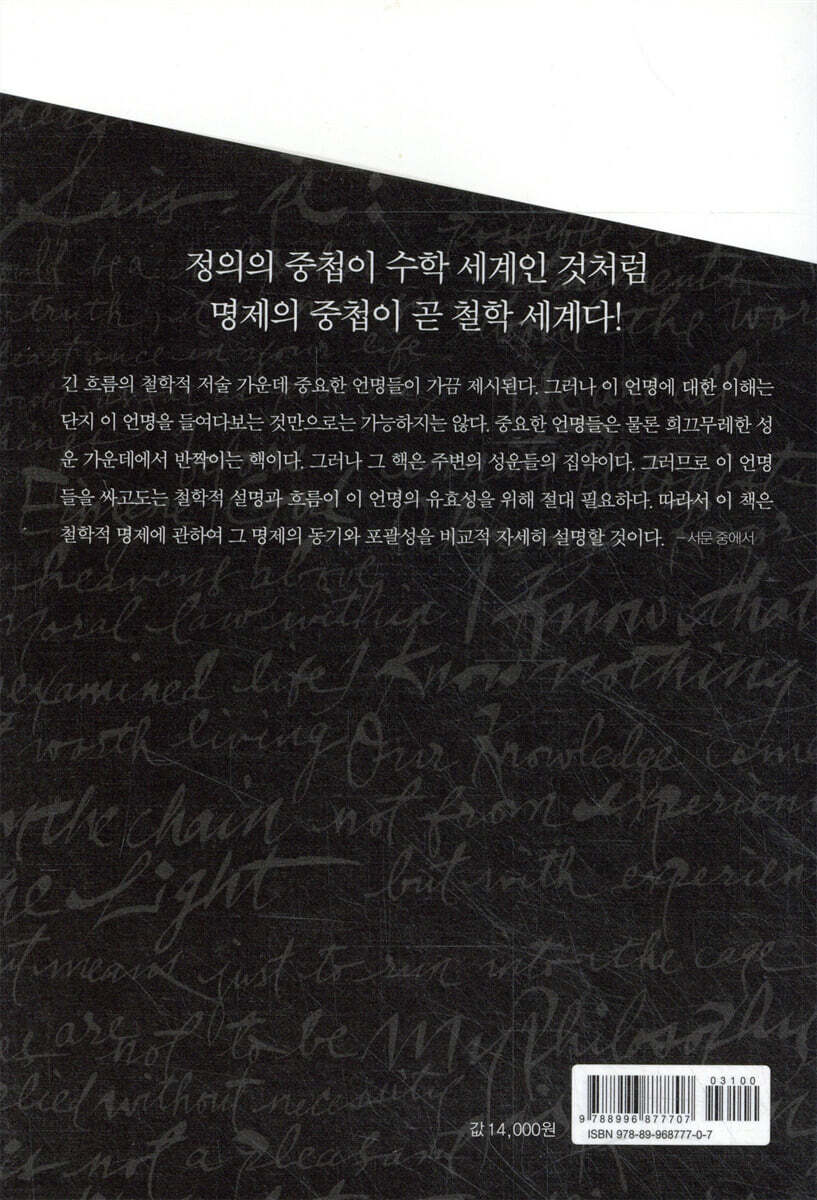 정의의 중첩이 수학 세계인 것처럼
명제의 중첩이 곧 철학 세계다!
긴 흐름의 철학적 저술 가운데 중요한 언명들이 가끔 제시된다. 그러나 이 언명에 대한 이해는
단지 이 언명을 들여다보는 것만으로는 가능하지는 않다. 중요한 언명들은 물론 희끄무레한 성
운 가운데에서 반짝이는 핵이다. 그러나 그 핵은 주변의 성운들의 집약이다. 그러므로 이 언명
들을 싸고도는 철학적 설명과 흐름이 이 언명의 유효성을 위해 절대 필요하다. 따라서 이 책은
철학적 명제에 관하여 그 명제의 동기와 포괄성을 비교적 자세히 설명할 것이다. –서문 중에서
heavens above
moral law within I Know that
examined life I Know nothing
worth living Our Knowledge come
the chain not from experien
Light but with experien
means just to run into the cage
are not to be My Philosophy
without necessity
not a pleasant
03100
9 788996 877707
ISBN 978-89-968777-0-7
값 14,000원